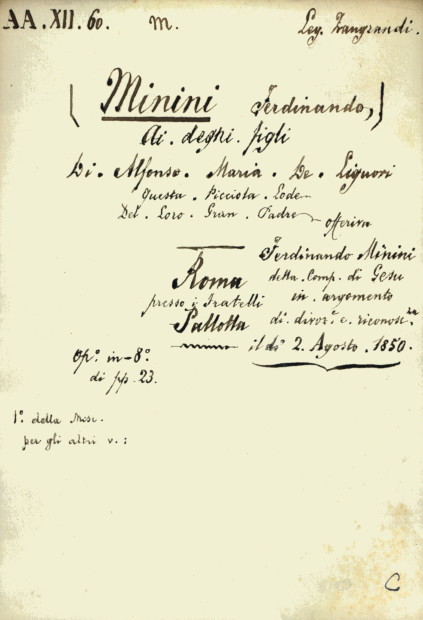 AA. XII. 60. M. Leg. Zangrandi.
(Minini Ferdinando,)
Ai. degni. figli
Di. Alfonso. Maria. De. Liguori
Questa. Picciola. Lode
Del. Loro. Gran. Padre
offeriva
Ferdinando Minini
della. Comp. di Gesu
in. argomento
di. divoz.e e. riconosc.za
il dì 2. Agosto. 1850.
Roma
presso i Fratelli
Pallotta
Op.o in-8o.
di pp. 23.
1o. della Misc.
per gli altri v.:
C